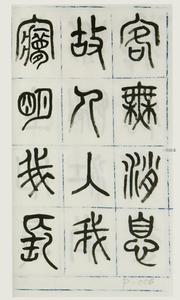 客無消息
故人入我
夢明我長